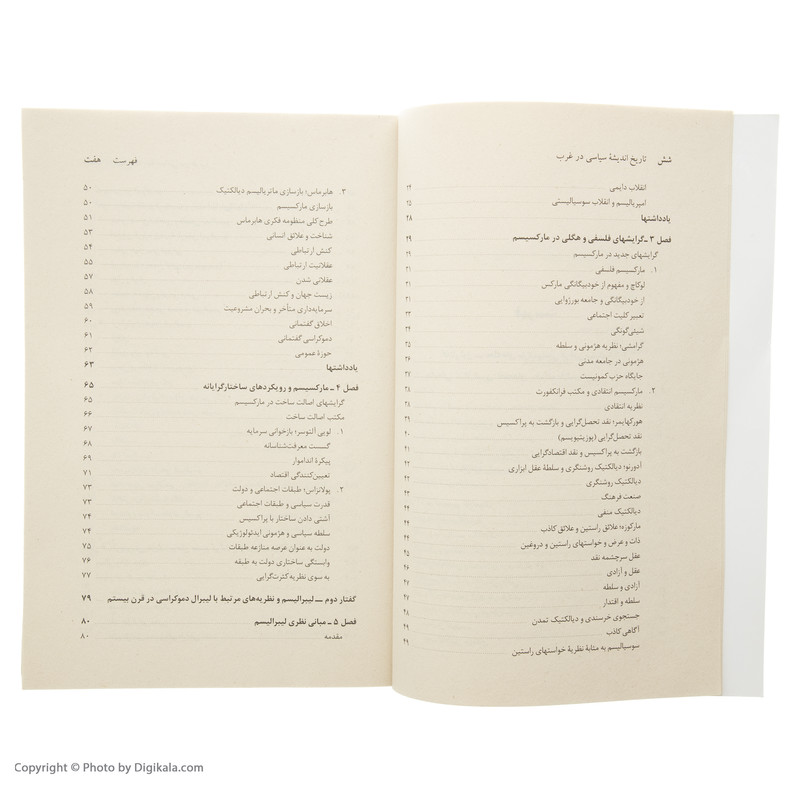 شش تاریخ اندیشهٔ سیاسی در غرب
انقلاب دایمی ۲۴
امپریالیسم و انقلاب سوسیالیستی ۲۵
یادداشتها ۲۸
فصل ۳ ـ گرایشهای فلسفی و هگلی در مارکسیسم ۲۹
گرایشهای جدید در مارکسیسم ۲۹
۱. مارکسیسم فلسفی ۳۱
لوکاچ و مفهوم از خودبیگانگی مارکس ۳۱
از خودبیگانگی و جامعه بورژوایی ۳۱
تعبیر کلیت اجتماعی ۳۳
شیئی‌گونگی ۳۴
گرامشی؛ نظریهٔ هژمونی و سلطه ۳۵
هژمونی در جامعه مدنی ۳۶
جایگاه حزب کمونیست ۳۷
۲. مارکسیسم انتقادی و مکتب فرانکفورت ۳۸
نظریهٔ انتقادی ۳۸
هورکهایمر؛ نقد تحصل‌گرایی و بازگشت به پراکسیس ۳۹
نقد تحصل‌گرایی (پوزیتیویسم) ۴۰
بازگشت به پراکسیس و نقد اقتصادگرایی ۴۱
آدورنو؛ دیالکتیک روشنگری و سلطهٔ عقل ابزاری ۴۲
دیالکتیک روشنگری ۴۲
صنعت فرهنگ ۴۳
دیالکتیک منفی ۴۴
مارکوزه؛ علائق راستین و علائق کاذب ۴۴
ذات و عرض و خواستهای راستین و دروغین ۴۴
عقل سرچشمه نقد ۴۵
عقل و آزادی ۴۶
آزادی و سلطه ۴۷
سلطه و اقتدار ۴۷
جستجوی خرسندی و دیالکتیک تمدن ۴۸
آگاهی کاذب ۴۸
سوسیالیسم به مثابهٔ نظریهٔ خواستهای راستین ۴۹
فهرست هفت
۳. هابرماس؛ بازسازی ماتریالیسم دیالکتیک ۵۰
بازسازی مارکسیسم ۵۰
طرح کلی منظومه فکری هابرماس ۵۱
شناخت و علائق انسانی ۵۳
کنش ارتباطی ۵۴
عقلانیت ارتباطی ۵۵
عقلانی شدن ۵۷
زیست جهان و کنش ارتباطی ۵۸
سرمایه‌داری متأخر و بحران مشروعیت ۵۹
اخلاق گفتمانی ۶۰
دموکراسی گفتمانی ۶۱
حوزهٔ عمومی ۶۲
یادداشتها ۶۳
فصل ۴ ـ مارکسیسم و رویکردهای ساختارگرایانه ۶۵
گرایشهای اصالت ساخت در مارکسیسم ۶۵
مکتب اصالت ساخت ۶۶
۱. لویی آلتوسر؛ بازخوانی سرمایه ۶۷
گسست معرفت‌شناسانه ۶۸
پیکرهٔ اندام‌وار ۶۹
تعیین‌کنندگی اقتصاد ۷۱
۲. پولانزاس؛ طبقات اجتماعی و دولت ۷۳
قدرت سیاسی و طبقات اجتماعی ۷۳
آشتی دادن ساختار با پراکسیس ۷۴
سلطه سیاسی و هژمونی ایدئولوژیکی ۷۴
دولت به عنوان عرصه منازعه طبقات ۷۵
وابستگی ساختاری دولت به طبقه ۷۶
به سوی نظریه کثرت‌گرایی ۷۷
گفتار دوم ــ لیبرالیسم و نظریه‌های مرتبط با لیبرال دموکراسی در قرن بیستم ۷۹
فصل ۵ ـ مبانی نظری لیبرالیسم ۸۰
مقدمه ۸۰
Copyright © Photo by Digikala.com